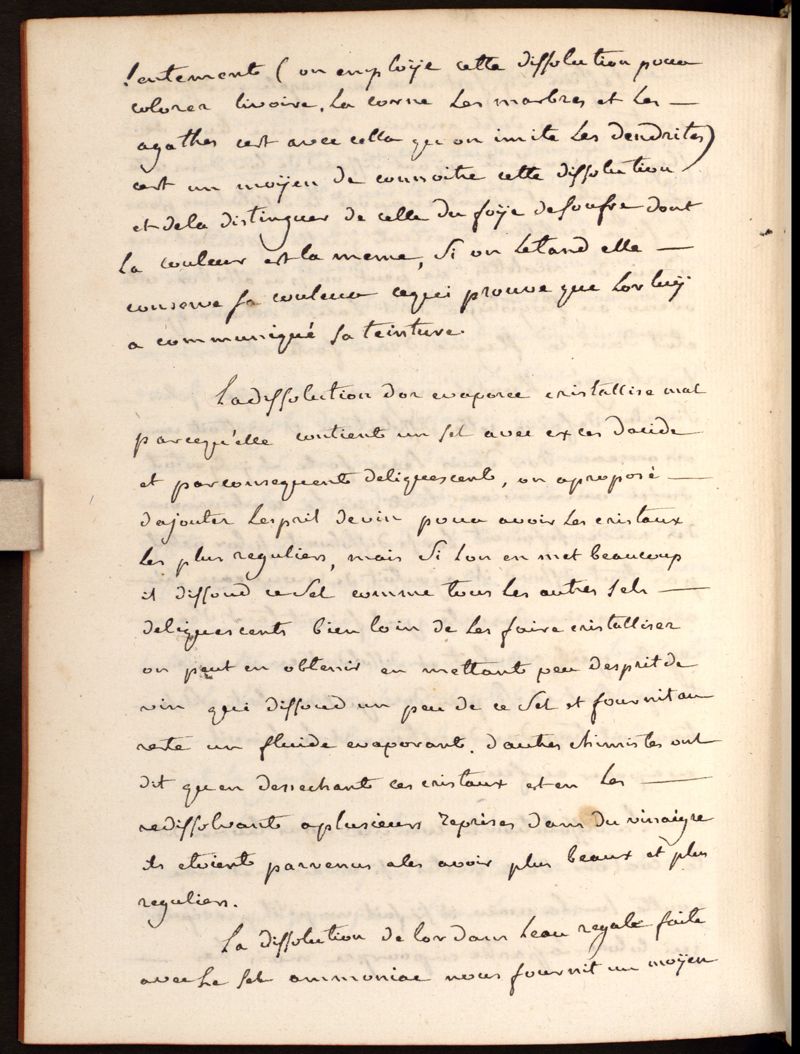 lentement (on employe cette dissolution pour
colorer livoire, La corne Les marbres et Les —
agathes cest avec cella qu'on imite Les dendrites)
cest un moÿen de connoitre cette dissolution
et dela distinguer de celle du foÿe desoufre dont
La couleur est la meme, Si on Letand elle —
conserve sa couleur cequi prouve que Lor luÿ
a communiqué sa teinture.
Ladissolution dor evaporée cristallise mal
parcequ'elle contient un sel avec exces dacide
et parconsequent deliquescent, on aproposé —
dajouter Lesprit devin pour avoir Les cristaux
Les plus reguliers, mais Si Lon en met beaucoup
il dissoud ce Sel comme tous Les autres sels —
deliquescents bien loin de Les faire cristalliser
on peut en obtenir en mettant peu desprit de
vin qui dissoud un peu de ce Sel et fournit au
reste un fluide evaporant. dautres chimistes ont
dit quen dessechant ces cristaux et en Les —
redissolvant aplusieurs reprises dans du vinaigre
ils etoient parvenus ales avoir plus beaux et plus
reguliers.
La dissolution de lor dans Leau regale faite
avec Le sel ammoniac nous fournit un moÿen